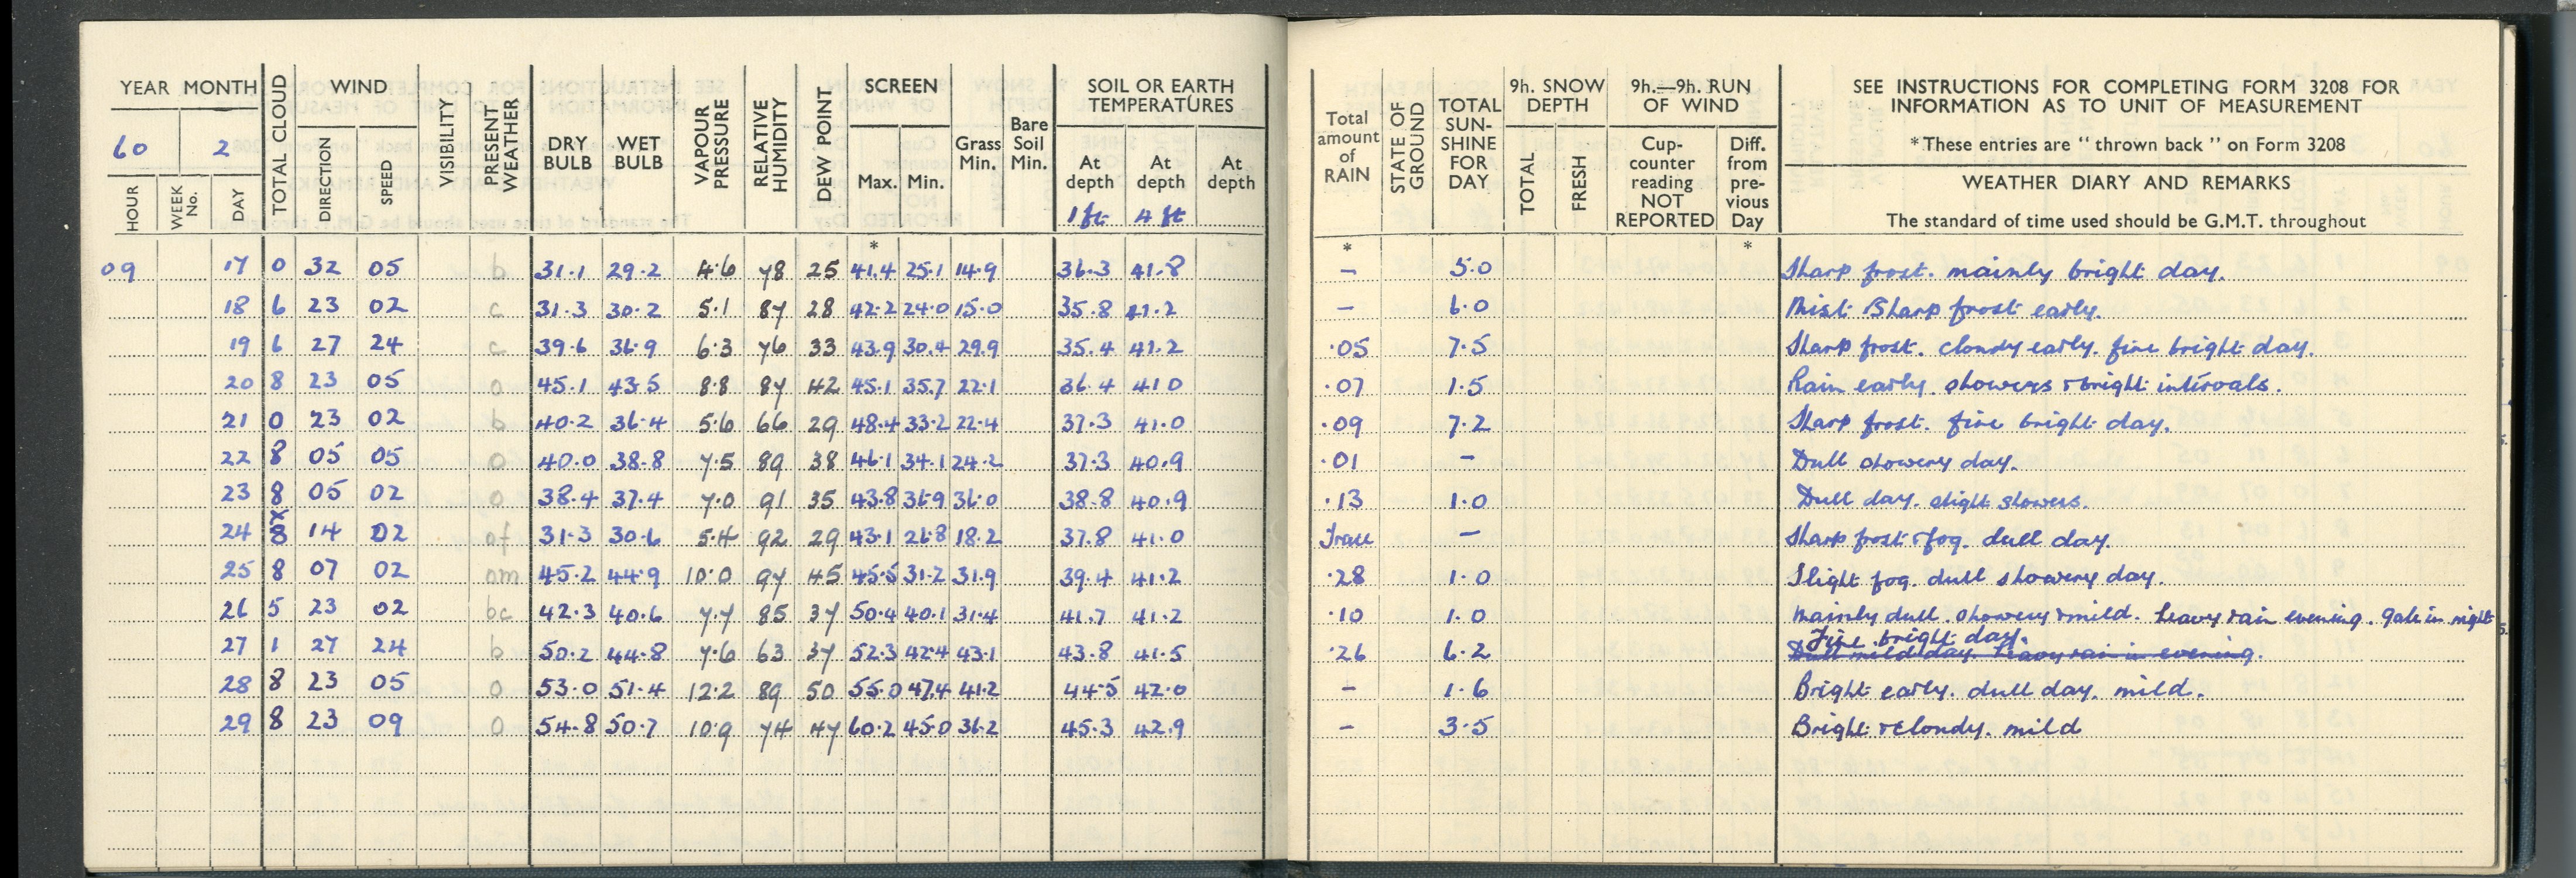 YEAR MONTH
60 2
HOUR WEEK No. DAY TOTAL CLOUD
WIND
DIRECTION SPEED
VISIBILITY
PRESENT WEATHER
DRY BULB WET BULB
VAPOUR PRESSURE
RELATIVE HUMIDITY
DEW POINT
SCREEN
Max. Min.
*
Grass Min.
Bare Soil Min.
SOIL OR EARTH TEMPERATURES
At depth 1 ft At depth 4 ft At depth
Total amount of RAIN
*
STATE OF GROUND
TOTAL SUN-SHINE FOR DAY
9h. SNOW DEPTH
TOTAL FRESH
9h.—9h. RUN OF WIND
Cup-counter reading NOT REPORTED
Diff. from pre-vious Day
*
SEE INSTRUCTIONS FOR COMPLETING FORM 3208 FOR
INFORMATION AS TO UNIT OF MEASUREMENT
* These entries are "thrown back" on Form 3208
WEATHER DIARY AND REMARKS
The standard of time used should be G.M.T. throughout
09 17 0 32 05 b 31.1 29.2 4.6 78 25 41.4 25.1 14.9 36.3 41.8 — 5.0 Sharp frost. mainly bright day.
18 6 23 02 c 31.3 30.2 5.1 87 28 42.2 24.0 15.0 35.8 41.2 — 6.0 Mist. Sharp frost early.
19 6 27 24 c 39.6 36.9 6.3 76 33 43.9 30.4 29.9 35.4 41.2 .05 7.5 Sharp frost. cloudy early. fine bright day.
20 8 23 05 o 45.1 43.5 8.8 87 42 45.1 35.7 22.1 36.4 41.0 .07 1.5 Rain early. showers & bright intervals.
21 0 23 02 b 40.2 36.4 5.6 66 29 48.4 33.2 22.4 37.3 41.0 .09 7.2 Sharp frost. fine bright day.
22 8 05 05 o 40.0 38.8 7.5 89 38 46.1 34.1 24.2 37.3 40.9 .01 — Dull showery day.
23 8 05 02 o 38.4 37.4 7.0 91 35 43.8 36.9 36.0 38.8 40.9 .13 1.0 Dull day. slight showers.
24 8 14 02 of 31.3 30.6 5.4 92 29 43.1 26.8 18.2 37.8 41.0 Trace — Sharp frost & fog. dull day.
25 8 07 02 om 45.2 44.9 10.0 97 45 45.5 31.2 31.9 39.4 41.2 .28 1.0 Slight fog. dull showery day.
26 5 23 02 bc 42.3 40.6 7.7 85 37 50.4 40.1 31.4 41.7 41.2 .10 1.0 Mainly dull. showery & mild. heavy rain evening. gale in night
27 1 27 24 b 50.2 44.8 7.6 63 37 52.3 42.4 43.1 43.8 41.5 .26 6.2 Fine bright day.
Dull mild day. heavy rain in evening.
28 8 23 05 o 53.0 51.4 12.2 89 50 55.0 47.4 41.2 44.5 42.0 — 1.6 Bright early. dull day. mild.
29 8 23 09 o 54.8 50.7 10.9 74 47 60.2 45.0 36.2 45.3 42.9 — 3.5 Bright & cloudy. mild